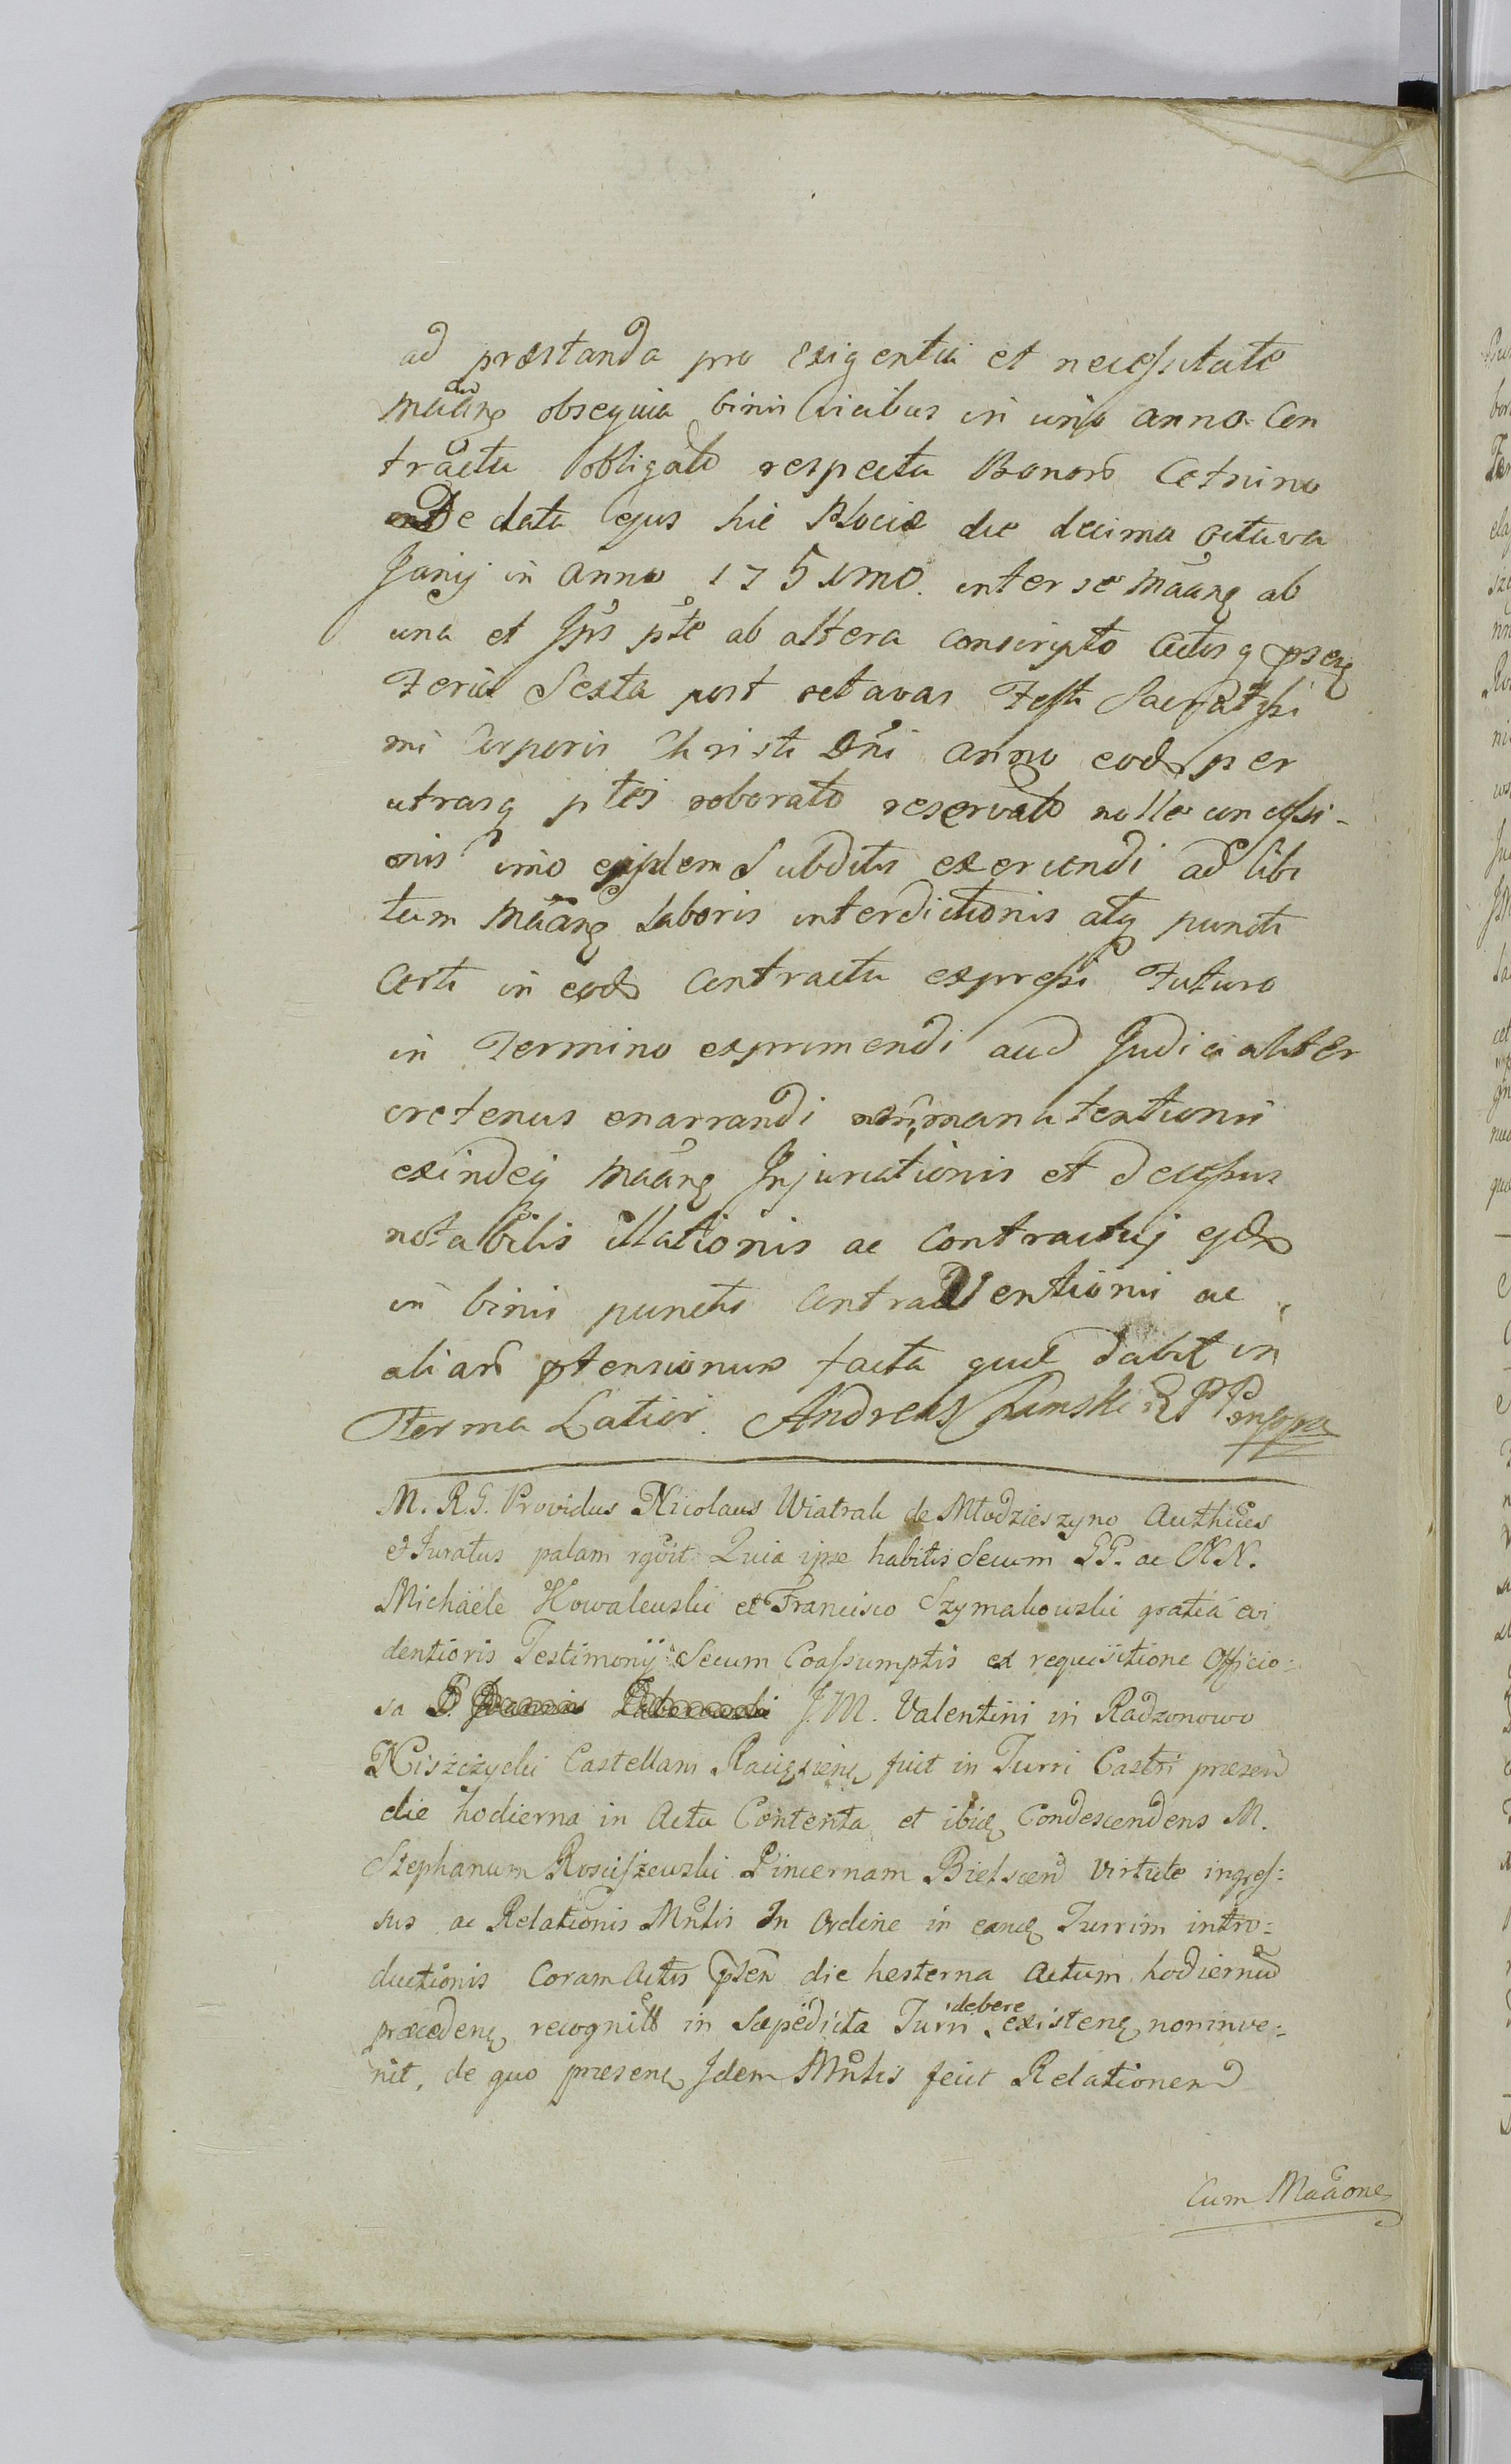 ad præstanda pro exigentia et necessitate
maãnẽ obsequia binis vicibus in uno anno Con
tractu obligato respectu Bonorũ Cetnino
De data ejus hic Plociæ die decima octava
Junij in anno 1751mo. inter se maãnẽ ab
una et Jpõs pte ab altera conscripto Actisq psenẽ
Feria Sexta post octavas Festi Sacratissi
mi Corporis Christi Dñi anno eodẽ per
utrasq ptes roborato reservato nullæ concessi-
onis imo ejusdem Subditis exercendi ad libi
tum maãnẽ Laboris interdictionis atq puncti
Certi in eodẽ Contractu expressi Futuro
in Termino exprimendi aud Judicialiter
oretenus enarrandi manutentionis
exindeq maãnẽ Injuriationis et decessus
notabilis illationis ac contractuj ejdẽ
in binis punctis Contraventionis ac
aliarũ ptensionum facta quæ dabit in
Terma Latior. Andreas
M. R. G. Providus Nicolaus Wiatrak de Młodzieszyno Authẽces
et Juratus palam rgõvit Quia ipse habitis Secum GG. ac NN.
Michaële Kowalewski et Francisco Szymakowski gratiâ evi
dentioris Testimonij Secum Coassumptis ex requisitione Officio:
sa J. M. Valentini in Radzonowo
Niszczycki Castellani Raciąsienẽ fuit in Turri Castri præsenẽ
die hodierna in Actu Contenta et ibiqẽ Condescendens M.
Stephanum Rosciszewski Pincernam Bielscenẽ virtute ingres:
sus ac Relationis Mnlis In Ordine in eamqẽ Turrim intro:
ductionis Coram Actis psen die hesterna Actum hodiernũ
præcedenẽ recognitõ in Sæpedicta Turri debere existenẽ non inve:
nit, de quo præsenẽ Idem Mnlis fecit Relationem
Cum Maãone